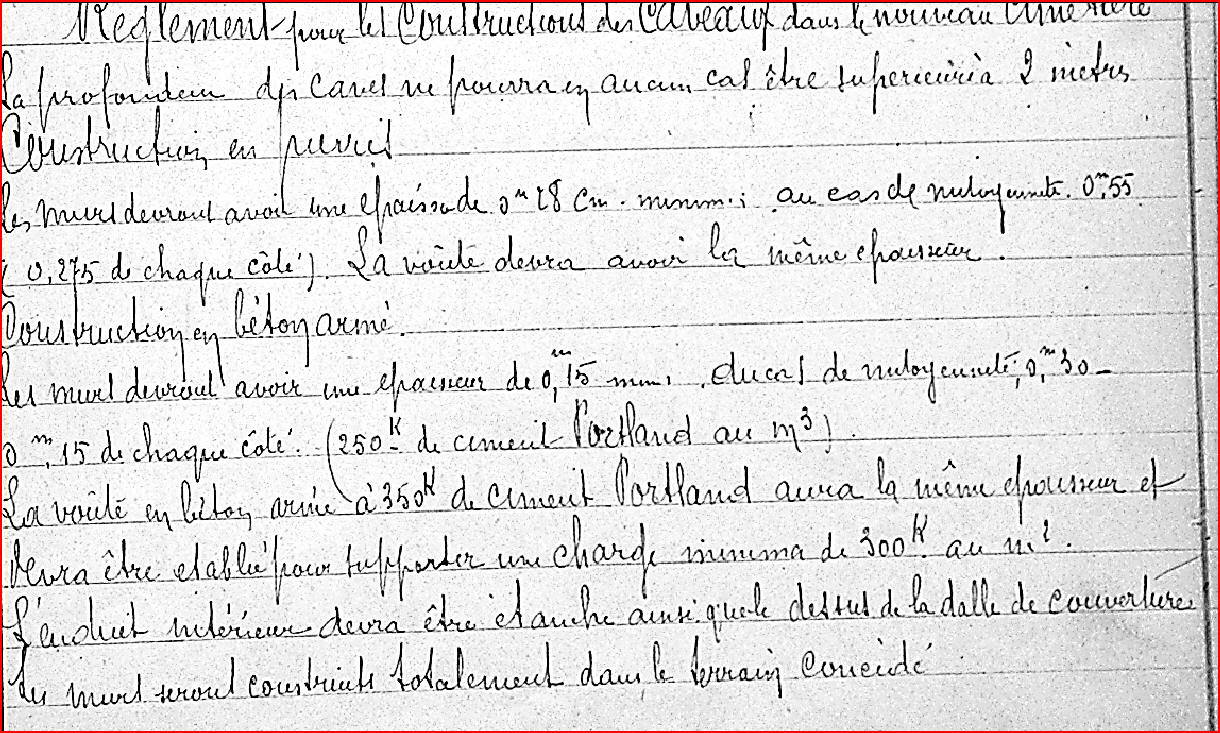 Règlement pour les Constructions des Caveaux dans le nouveau Cimetière
La profondeur des caves ne pourra en aucun cas être superieure à 2 mètres
Construction en pierres
Les murs devront avoir une epaiss. de 0m 28 cm. minim. au cas de mitoyenneté. 0m,55
( 0,275 de chaque côté). La voûte devra avoir la même epaisseur.
Construction en béton armé.
Les murs devront avoir une epaisseur de 0,m15 mini. cas de mitoyenneté, 0,m30 -
0m,15 de chaque côté. (250K de ciment Portland au m3).
La voûte en béton armé à 350K de ciment Portland aura la même epaisseur et
devra être etablie pour supporter une charge minima de 300K au m2.
L'enduit intérieur devra être étanche ainsi que le dessus de la dalle de couverture
Les murs seront construits totalement dans le terrain Concédé